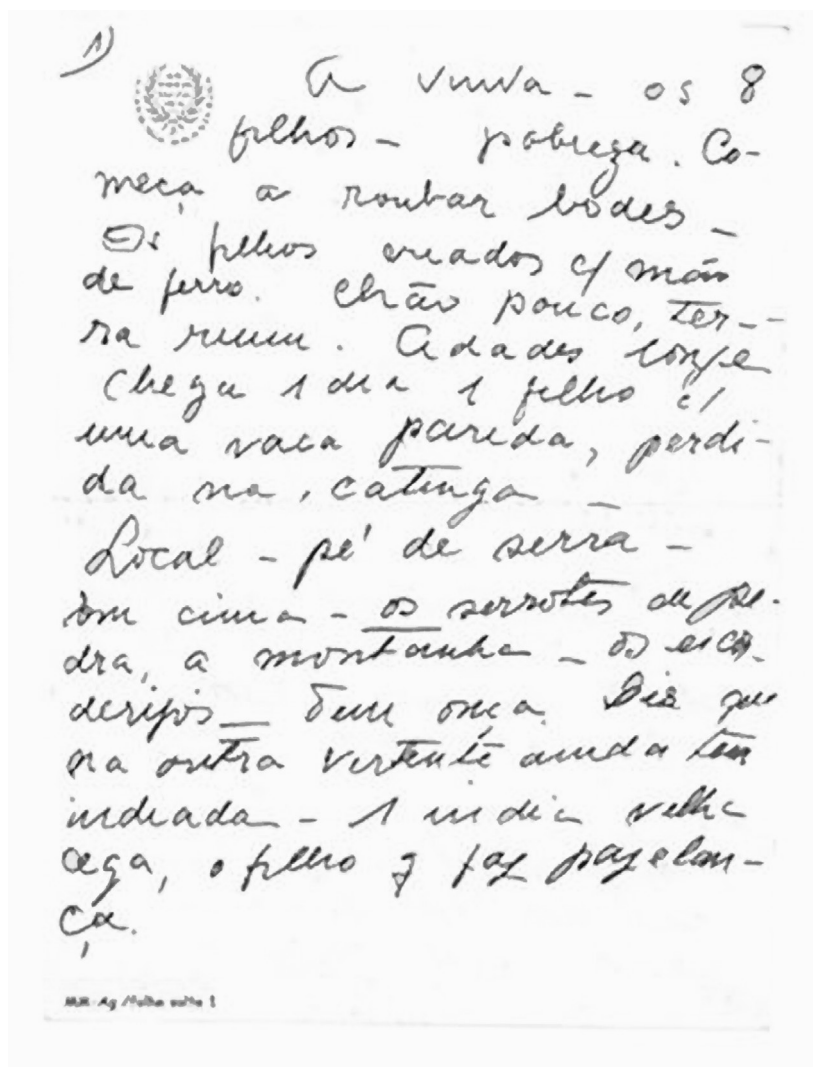 1)
A viuva - os 8
filhos - pobreza. Co-
meça a roubar bodes -
Os filhos creados c/ mão
de ferro. Chão pouco, ter-
ra ruim. Cidades longe
Chega 1 dia 1 filho c/
uma vaca parida, perdi-
da na catinga -
Local - pé de serra -
em cima - os serrotes de pe-
dra, a montanha - os escon-
derijos - Tem onça. Diz que
na outra vertente ainda tem
indiada - 1 india velha
cega, o filho q faz pajelan-
ça.